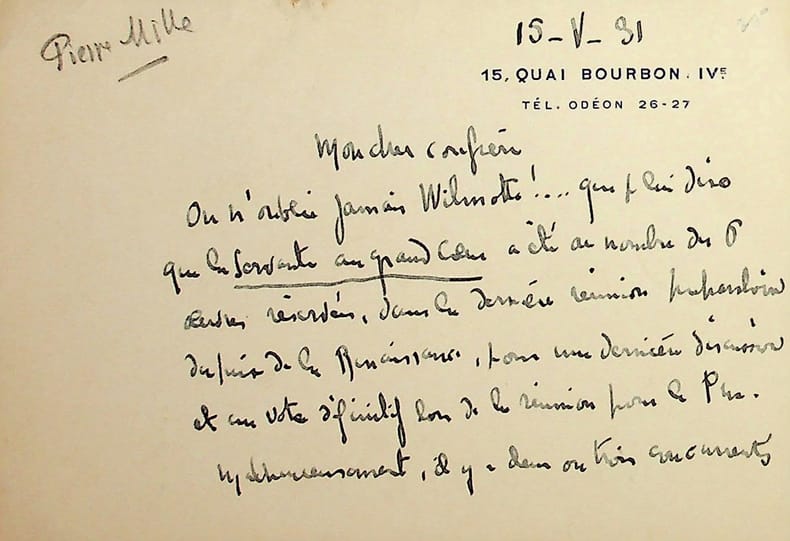 Pierre Mille
15-V-31
15, QUAI BOURBON. IVE
TÉL. ODÉON 26-27
Mon cher confrère
On n'oublie jamais Wilmotte!... que
que la Servante au grand Cœur a été au nombre des 6
œuvres réservées, dans la dernière réunion préparatoire
du prix de la Renaissance, pour une dernière discussion
et un vote définitif lors de la réunion pour le Prix.
Malheureusement, il y a deux ou trois concurrents